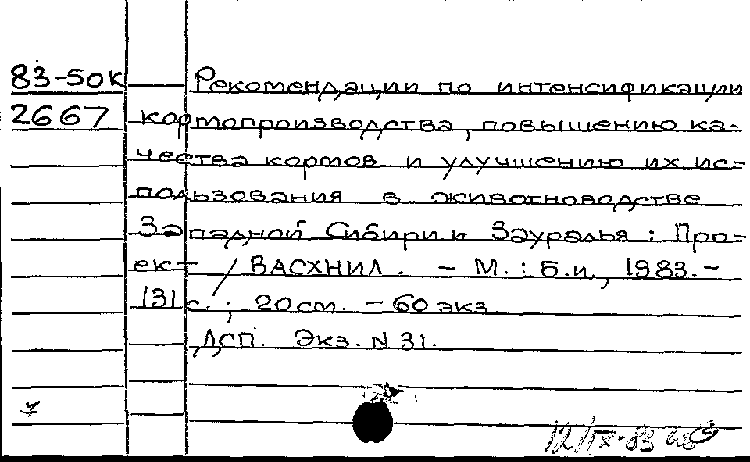 83-50К Рекомендации по интенсификации
2667 кормопроизводства, повышению ка-
чества кормов и улучшению их ис-
пользования в животноводстве
Западной Сибири и Зауралья: Про-
ект / ВАСХНИЛ. - М.: Б.и., 1983. -
131 с.; 20 см. - 60 экз.
ДСП. Экз. N 31.
12/IX-83